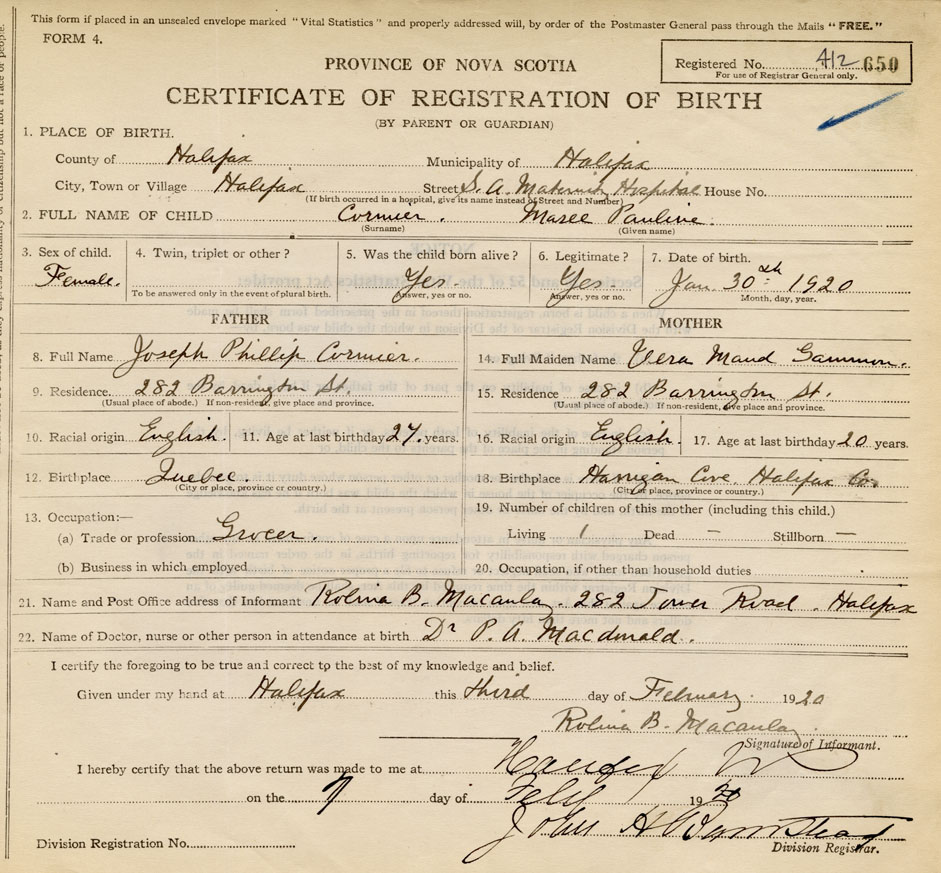 This form if placed in an unsealed envelope marked "Vital Statistics" and properly addressed will, by order of the Postmaster General pass through the Mails "FREE."
FORM 4.
PROVINCE OF NOVA SCOTIA
Registered No. 412 650
For use of Registrar General only.
CERTIFICATE OF REGISTRATION OF BIRTH
(BY PARENT OR GUARDIAN)
1. PLACE OF BIRTH.
County of Halifax Municipality of Halifax
City, Town or Village Halifax Street S. A. Maternity Hospital House No.
(If birth occurred in a hospital, give its name instead of Street and Number)
2. FULL NAME OF CHILD Cormier. Maree Pauline.
(Surname) (Given name)
3. Sex of child. 4. Twin, triplet or other? 5. Was the child born alive? 6. Legitimate? 7. Date of birth.
Female. Yes. Yes. Jan. 30th 1920
To be answered only in the event of plural birth. Answer, yes or no. Answer, yes or no. Month, day, year.
FATHER MOTHER
8. Full Name Joseph Phillip Cormier. 14. Full Maiden Name Vera Maud Gammon.
9. Residence. 282 Barrington St. 15. Residence 282 Barrington St.
(Usual place of abode.) If non-resident, give place and province. (Usual place of abode.) If non-resident, give place and province.
10. Racial origin English. 11. Age at last birthday 27. years. 16. Racial origin English. 17. Age at last birthday 20 years.
12. Birthplace Quebec. 18. Birthplace Harrigan Cove Halifax Co.
(City or place, province or country.) (City or place, province or country.)
13. Occupation:— 19. Number of children of this mother (including this child.)
(a) Trade or profession Grocer. Living 1 Dead — Stillborn —
(b) Business in which employed 20. Occupation, if other than household duties
21. Name and Post Office address of Informant Rolina B. Macaulay. 282 Tower Road. Halifax
22. Name of Doctor, nurse or other person in attendance at birth Dr P. A. Macdonald.
I certify the foregoing to be true and correct to the best of my knowledge and belief.
Given under my hand at Halifax this third day of February 1920
Rolina B. Macaulay
Signature of Informant.
I hereby certify that the above return was made to me at Halifax
on the 7 day of Feby 1920
John A
Division Registration No. Division Registrar.